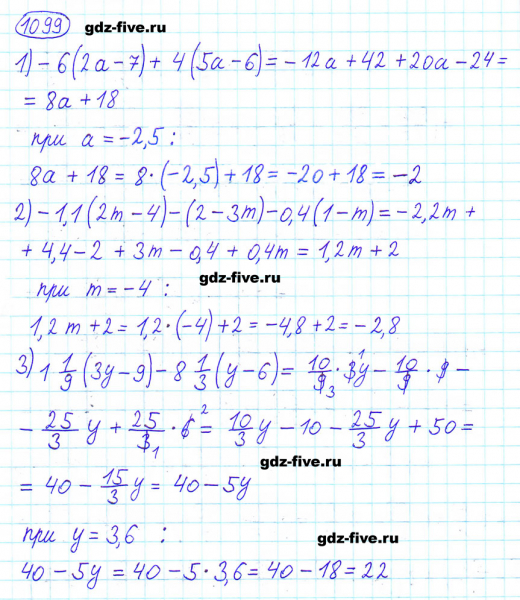 1099 gdz-five.ru
1) - 6(2a - 7) + 4(5a - 6) = - 12a + 42 + 20a - 24 =
= 8a + 18
при a = -2,5 :
8a + 18 = 8 · (-2,5) + 18 = -20 + 18 = -2
2) - 1,1(2m - 4) - (2 - 3m) - 0,4(1 - m) = - 2,2m +
+ 4,4 - 2 + 3m - 0,4 + 0,4m = 1,2m + 2
gdz-five.ru
при m = -4 :
1,2m + 2 = 1,2 · (-4) + 2 = -4,8 + 2 = -2,8
3) 1 1/9 (3y - 9) - 8 1/3 (y - 6) = 10/9 3 · 3 1 y - 10/9 · 9 -
- 25/3 y + 25/3 1 · 6 2 = 10/3 y - 10 - 25/3 y + 50 =
gdz-five.ru
= 40 - 15/3 y = 40 - 5y
при y = 3,6 :
gdz-five.ru
40 - 5y = 40 - 5 · 3,6 = 40 - 18 = 22